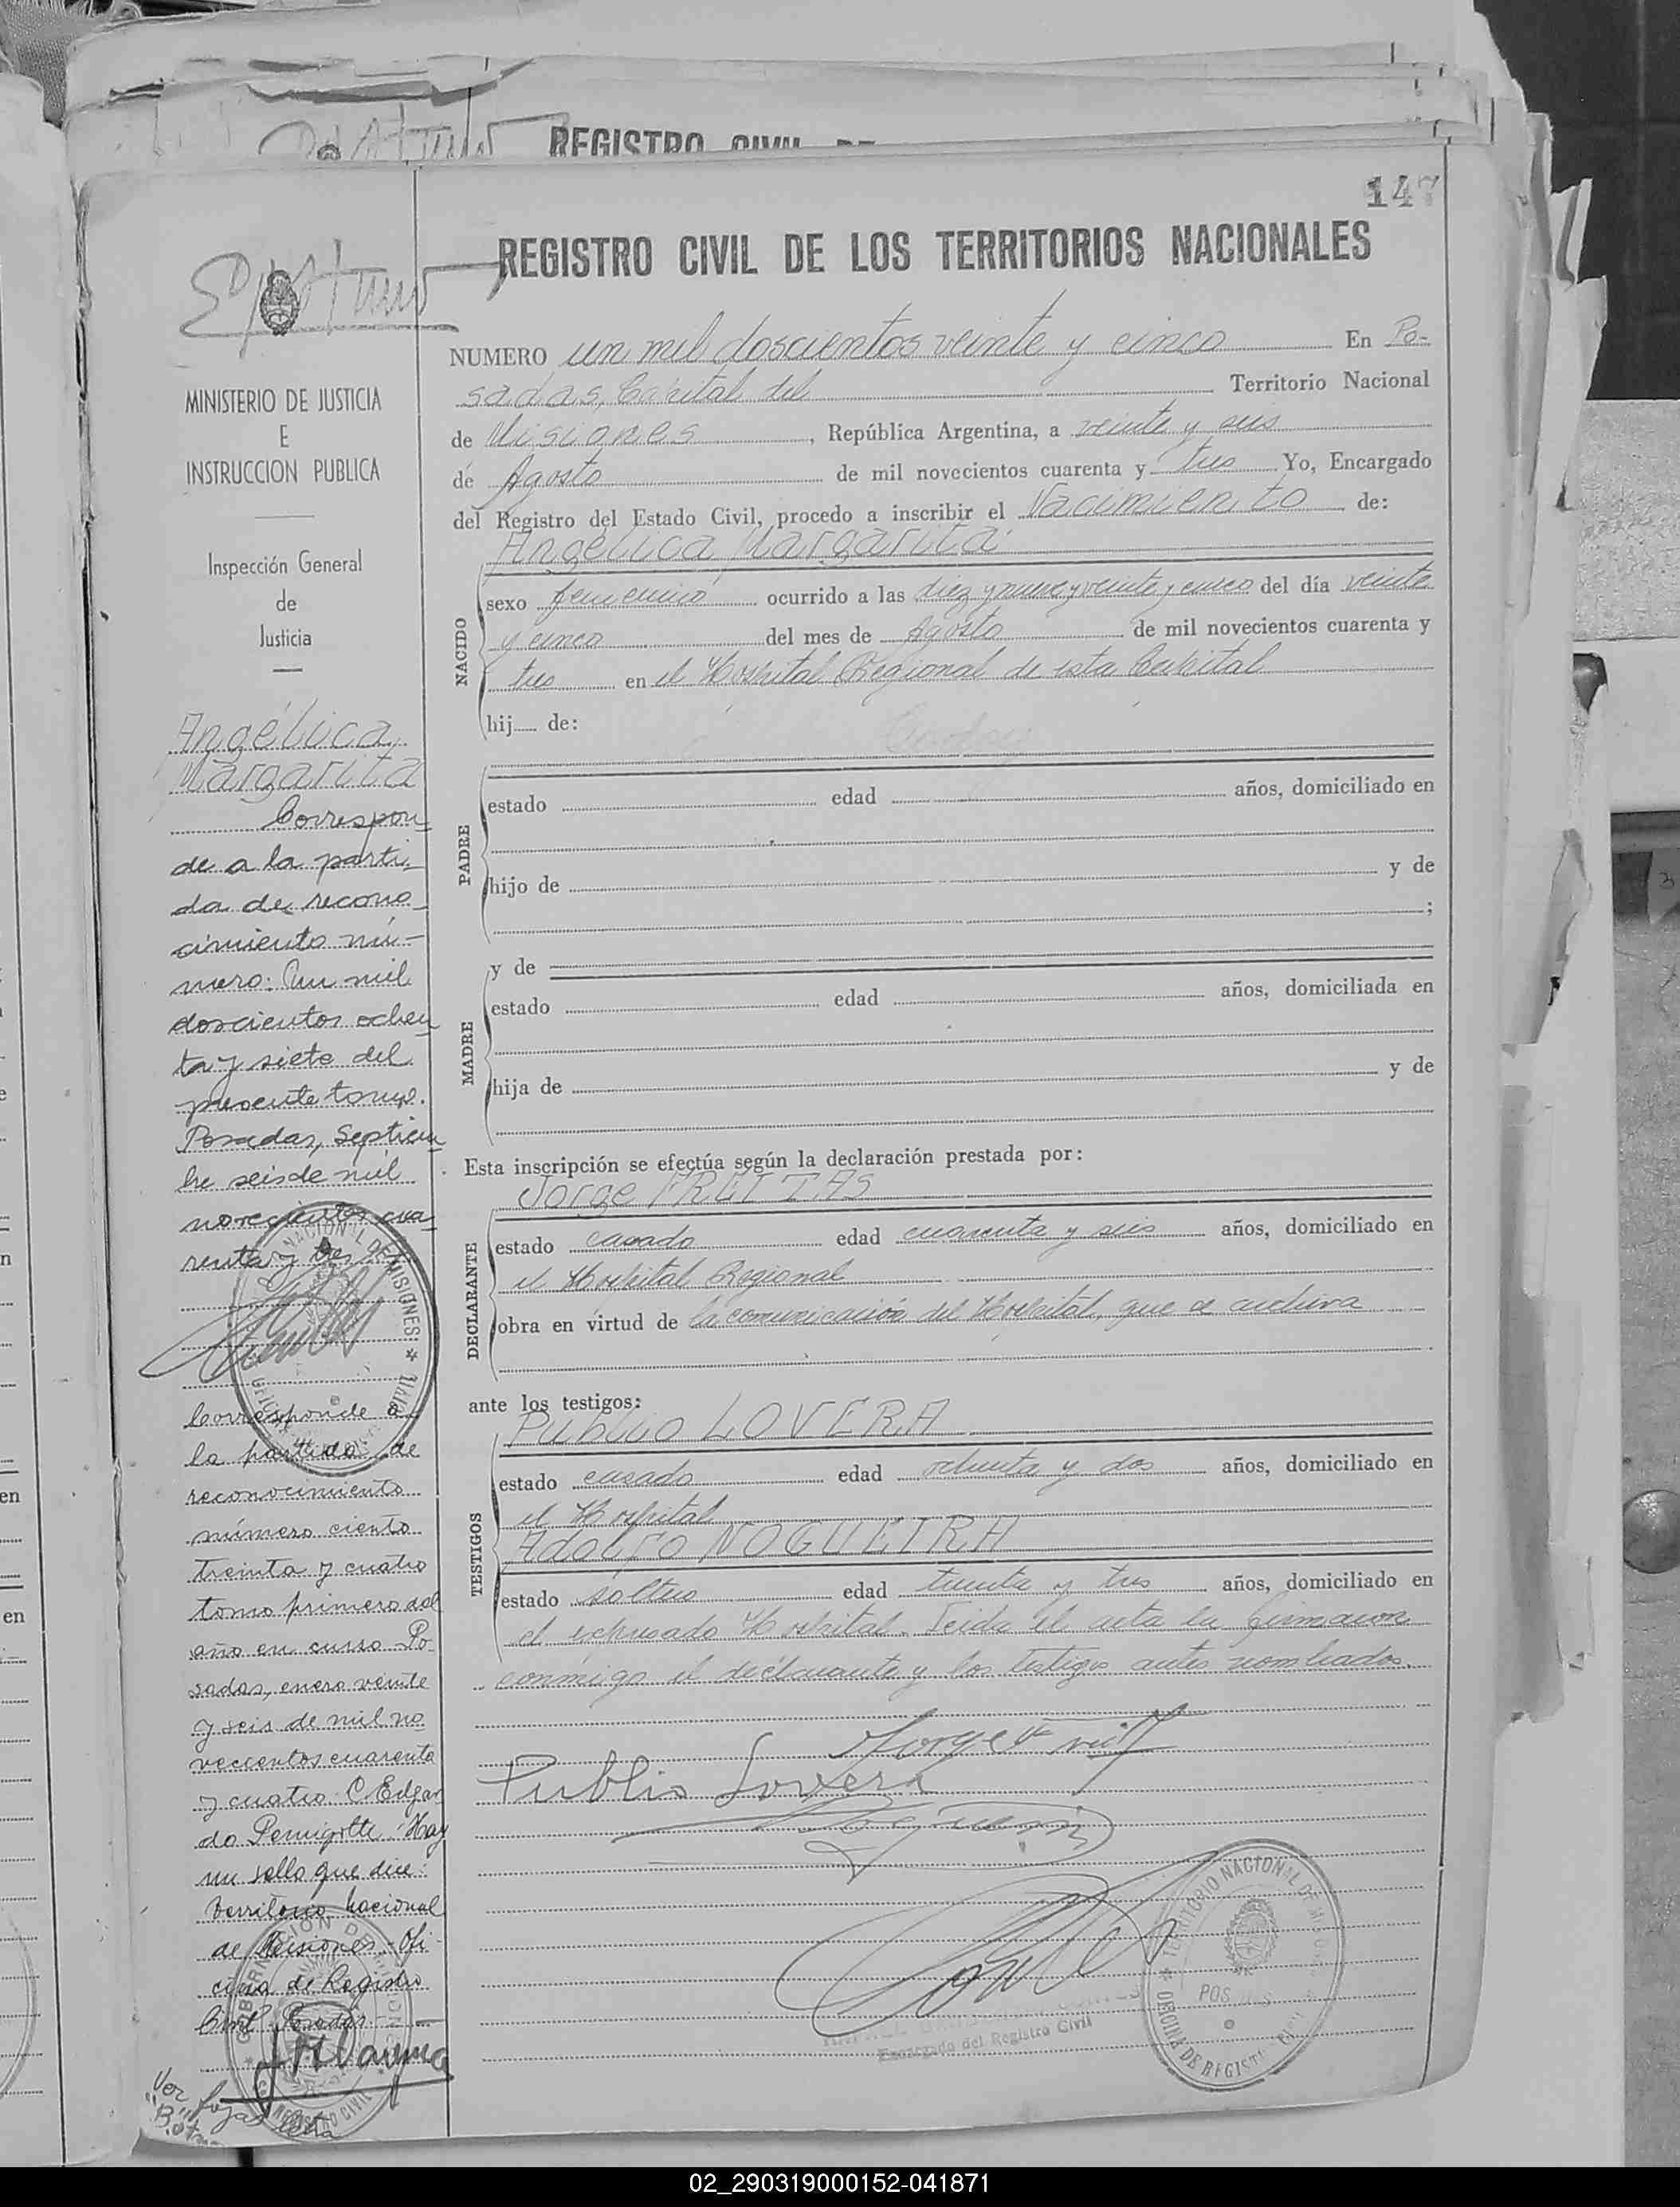 REGISTRO CIVIL DE
147
REGISTRO CIVIL DE LOS TERRITORIOS NACIONALES
MINISTERIO DE JUSTICIA
E
INSTRUCCION PUBLICA
Inspección General
de
Justicia
Angélica
Margarita
Correspon
de a la parti
da de recono
cimiento nú-
mero: Un mil
doscientos ochen
ta y siete del
presente tomo.
Posadas, Septiem
bre seis de mil
novecientos cua
renta y tres
Corresponde a
la partida de
reconocimiento
número ciento
treinta y cuatro
tomo primero del
año en curso Po
sadas, enero veinte
y seis de mil no
vecientos cuarenta
y cuatro. C. Edgar
do Hay
un sello que dice:
Territorio Nacional
de Misiones. Ofi
cina de Registro
Civil Posadas
Ver fojas
"B"
NUMERO un mil doscientos veinte y cinco En Po-
sadas, Capital del Territorio Nacional
de Misiones, República Argentina, a veinte y seis
de Agosto de mil novecientos cuarenta y tres Yo, Encargado
del Registro del Estado Civil, procedo a inscribir el Nacimiento de:
Angélica Margarita
NACIDO
sexo femenino ocurrido a las diez y nueve y veinte y cinco del día veinte
y cinco del mes de Agosto de mil novecientos cuarenta y
tres en el Hospital Regional de esta Capital
hij de:
PADRE
estado edad años, domiciliado en
hijo de y de
;
MADRE
y de
estado edad años, domiciliada en
hija de y de
Esta inscripción se efectúa según la declaración prestada por:
Jorge FREITAS
DECLARANTE
estado casado edad cuarenta y seis años, domiciliado en
el Hospital Regional
obra en virtud de la comunicación del Hospital, que se archiva
ante los testigos:
Publio LOVERA
TESTIGOS
estado casado edad ochenta y dos años, domiciliado en
el Hospital
Adolfo NOGUEIRA
estado soltero edad treinta y tres años, domiciliado en
el expresado Hospital. Leída el acta la firmaron
conmigo el declarante y los testigos antes nombrados.
Publio Lovera
Encargado del Registro Civil
TERRITORIO NACIONAL DE MISIONES
POSADAS
OFICINA DE REGISTRO CIVIL
02_290319000152-041871